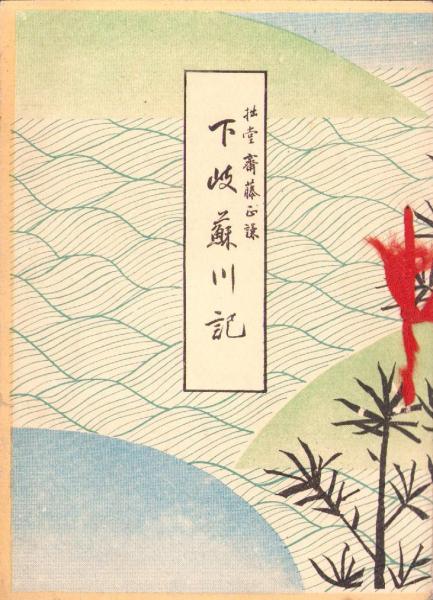 拙堂齋藤正謙
下岐蘇川記